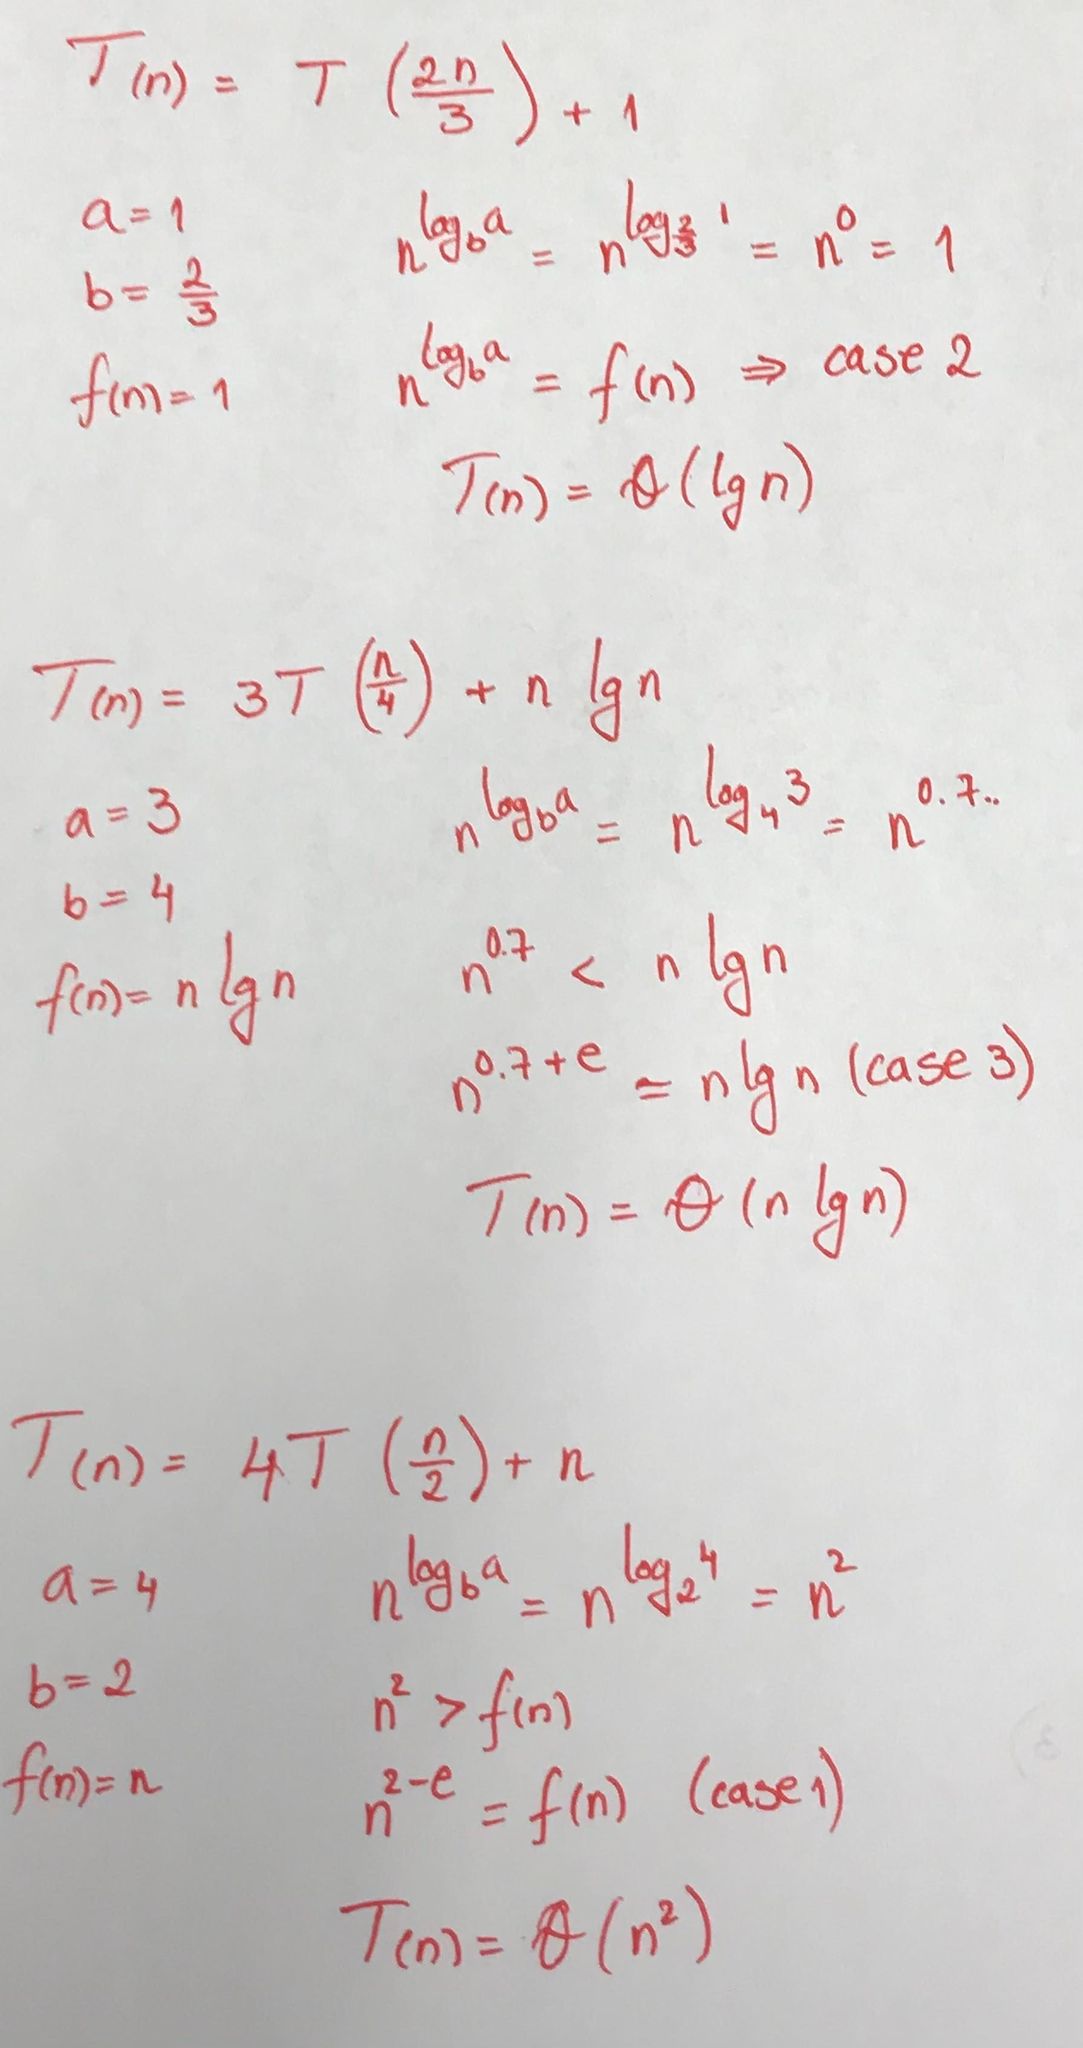 T(n) = T (2n/3) + 1
a = 1
b = 2/3
f(n) = 1
n^log_b a = n^log_2/3 1 = n^0 = 1
n^log_b a = f(n) ⇒ case 2
T(n) = θ(lg n)
T(n) = 3T (n/4) + n lg n
a = 3
b = 4
f(n) = n lg n
n^log_b a = n^log_4 3 = n^0.7..
n^0.7 < n lg n
n^0.7+e = n lg n (case 3)
T(n) = θ (n lg n)
T(n) = 4T (n/2) + n
a = 4
b = 2
f(n) = n
n^log_b a = n^log_2 4 = n^2
n^2 > f(n)
n^2-e = f(n) (case 1)
T(n) = θ (n^2)